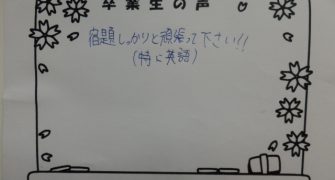 卒業生の声
宿題しっかりと頑張って下さい!!
(特に英語)